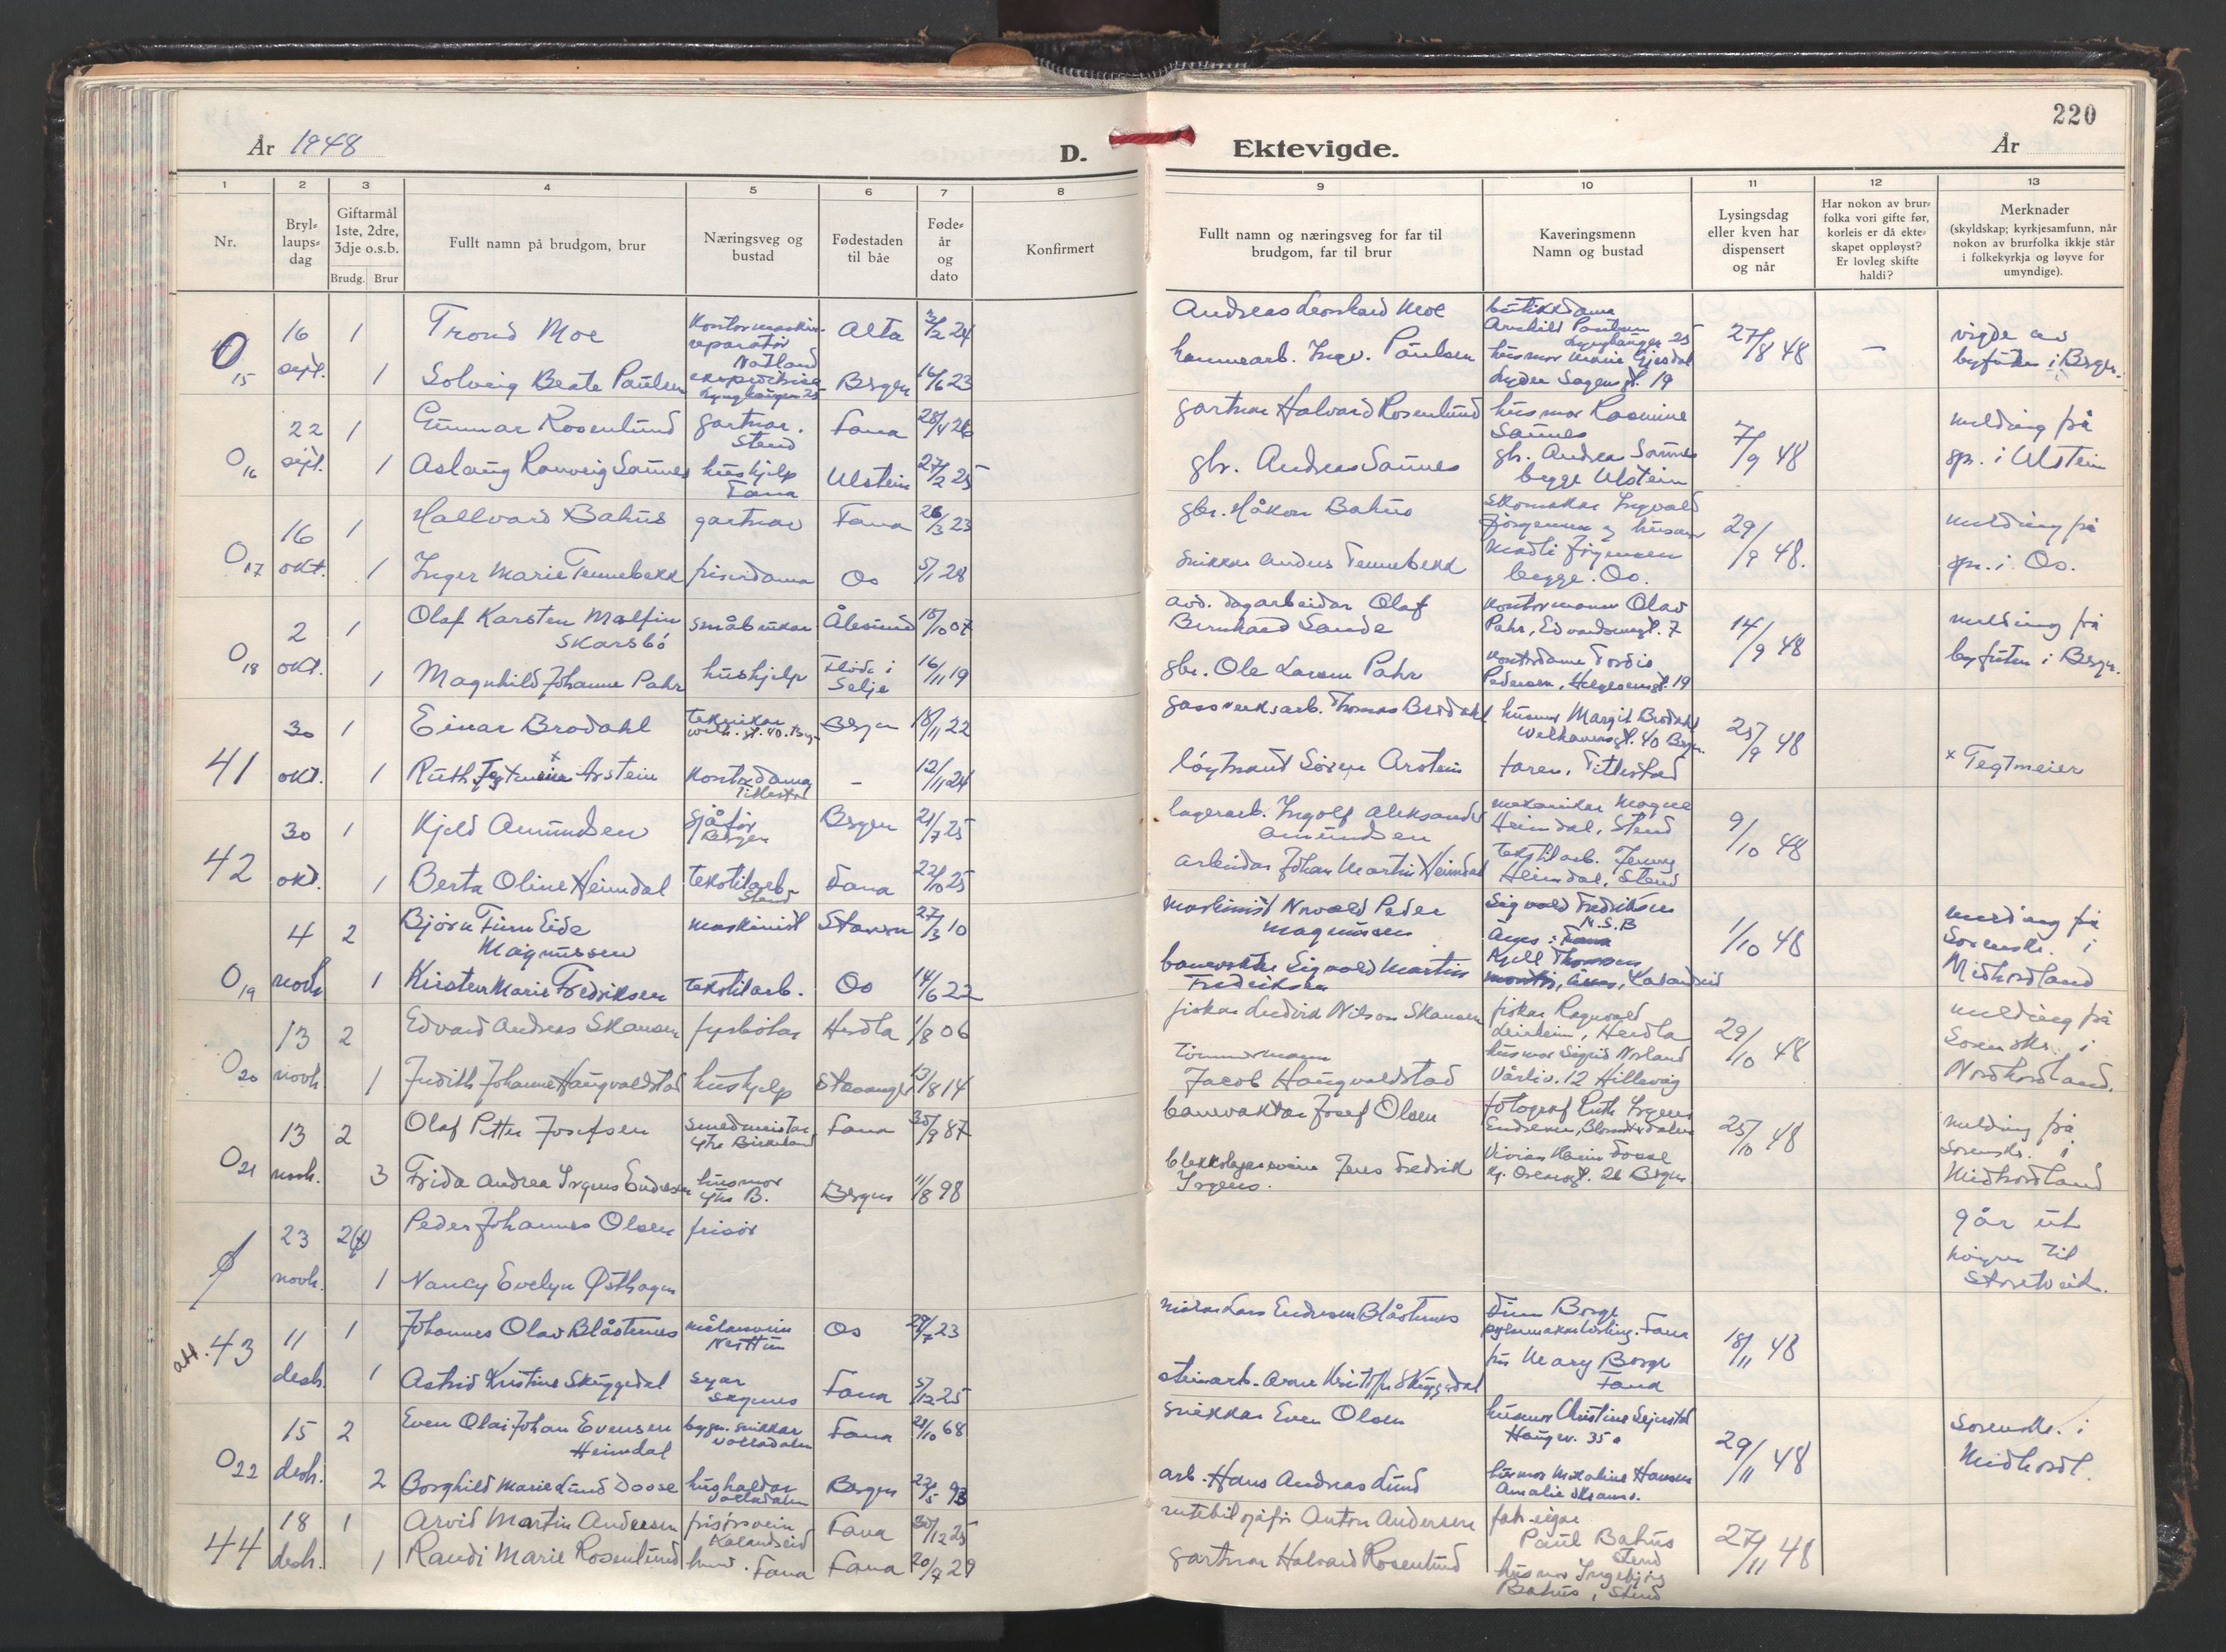 220
År 1948
D.
Ektevigde.
År
1 2 3 4 5 6 7 8 9 10 11 12 13
Nr.
Bryl-
laups-
dag
Giftarmål
1ste, 2dre,
3dje o.s.b.
Brudg. Brur
Fullt namn på brudgom, brur
Næringsveg og
bustad
Fødestaden
til båe
Føde-
år
og
dato
Konfirmert
Fullt namn og næringsveg for far til
brudgom, far til brur
Kaveringsmenn
Namn og bustad
Lysingsdag
eller kven har
dispensert
og når
Har nokon av brur-
folka vori gifte før,
korleis er då ekte-
skapet oppløyst?
Er lovleg skifte
haldi?
Merknader
(skyldskap; kyrkjesamfunn, når
nokon av brurfolka ikkje står
i folkekyrkja og løyve for
umyndige).
O 15
16 sept.
1 Trond Moe
kontormaskin-
reparatør
Natland
Alta 3/2 24
Andreas Leonhard Moe
butikkdame
Arnhild Paulsen
Lynghaugen 25
27/8 48
—
vigde av
byfuten i Bergen.
1 Solveig Beate Paulsen
ekspeditrise
Lynghaugen 25
Bergen 16/6 23
hamnearb. Ingv. Paulsen
husmor Marie Gjesdal
Lyder Sagensgt. 19
O 16
22 sept.
1 Gunnar Rosenlund
gartnar.
Stend
Fana 28/4 26
gartnar Halvard Rosenlund
husmor Rasmine
Saunes
7/9 48
melding frå
spr. i Ulstein
1 Aslaug Ranveig Saunes
hushjelp
Fana
Ulstein 27/2 25
gbr. Andreas Saunes
gbr. Andreas Saunes
begge Ulstein
O 17
16 okt.
1 Hallvard Bahus
gartnar
Fana 26/3 23
gbr. Håkon Bahus
skomakar Ingvald
Jørgensen og husmor
29/9 48.
melding frå
spr. i Os.
1 Inger Marie Tennebekk
frisørdama
Os 5/1 28
snikkar Anders Tennebekk
Madli Jørgensen
begge. Os.
O 18
2 okt.
1 Olaf Karsten Malfin
Skarsbø
småbrukar
Ålesund 18/10 07
avd. dagarbeidar Olaf
Bernhard Sande
kontormann Olav
Pahr, Edvardsensgt. 7
14/9 48
melding frå
byfuten i Bergen.
1 Magnhild Johanne Pahr
hushjelp
Flöde i
Selje
16/11 19
gbr. Ole Larsen Pahr
kontordame Tordis
Pedersen, Helgesensgt. 19
41
30 okt.
1 Einar Brodahl
teknikar
Welh. gt. 40. Bergen
Bergen 18/11 22
gassverksarb. Thomas Brodahl
husmor Margit Brodahl
Welhavensgt. 40 Bergen.
25/9 48
x Tegtmeier
1 Ruth Tegtmeier x Arstein
kontordama
Titlestad
— 12/11 24
løytnant Sören Arstein
faren, Titlestad
42
30 okt.
1 Kjeld Amundsen
sjåfør
Bergen
Bergen 21/7 25
lagerarb. Ingolf Aleksander
Amundsen
mekanikar Magne
Heimdal, Stend
9/10 48
1 Berta Oline Heimdal
tekstilarb.
Stend
Fana 22/10 25
arbeidar Johan Martin Heimdal
tekstilarb. Jenny
Heimdal, Stend
O 19
4 novb.
2 Bjørn Finn Eide
Magnussen
maskinist
Stavern 27/3 10
maskinist Norvald Peder
Magnussen
Sigvald Fredriksen
N.S.B
1/10 48
melding frå
Sorenskr. i
Midhordland
1 Kirsten Marie Fredriksen
tekstilarb.
Os 14/6 22
banevakter Sigvald Martin
Fredriksen
Kjell Thomsen
O 20
13 novb.
2 Edvard Andreas Skansen
fyrbøtar
Herdla 1/8 06
fiskar Ludvik Nilsen Skansen
fiskar Ragnvald
Leirheim, Herdla
29/10 48
melding frå
Sorenskr. i
Nordhordland.
1 Judith Johanne Haugvaldstad
hushjelp
Stavanger 13/8 14
tømmermann
Jacob Haugvaldstad
husmor Sigrid Norland
Vårliv. 12 Hillevåg
O 21
13 novb.
2 Olaf Petter Josefsen
smedmeistar
Ytre Birkeland
Fana 30/9 87
banevaktar Josef Olsen
fotograf Ruth Irgens
Endresen, Blomsterdalen
25/10 48
melding frå
sorenskr. i
Midhordland
3 Frida Andrea Irgens Endresen
husmor
Ytre B.
Bergen 11/8 98
blekkslagarsvein Jens Fredrik
Irgens.
26 Bergen
23 novb.
2 Peder Johannes Olsen
frisør
går ut
høyrer til
Storetveit.
1 Nancy Evelyn Østhagen
att. 43
11 desb.
1 Johannes Olav Blåstenes
målarsvein
Nesttun
Os 29/7 23
målar Lars Endresen Blåstenes
Finn Borge
Fana
18/11 48
1 Astrid Kristine Skuggedal
syar
Fana 5/12 25
steinarb. Arne Kristoffer Skuggedal
fru Mary Borge
Fana
O 22
15 desb.
2 Even Olai Johan Evensen
Heimdal
bygn. snikkar
Valladalen
Fana 21/10 68
snikkar Even Olsen
husmor Christine Sejersted
Haugev. 35 a
29/11 48
sorenskr. i
Midhordl.
2 Borghild Marie Lund Doose
hushaldar
Valladalen
Bergen 22/5 93
arb. Hans Andreas Lund
husmor Mikaline Hansen
44
18 desb.
1 Arvid Martin Andersen
frisørsvein
Kalandseid
Fana 30/12 25
rutebilsjåfør Anton Andersen
fab. eigar
Paul Bahus
Stend
27/11 48
1 Randi Marie Rosenlund
husm. Fana
Fana 20/7 29
gartnar Halvard Rosenlund
husmor Ingebjørg
Bahus, Stend